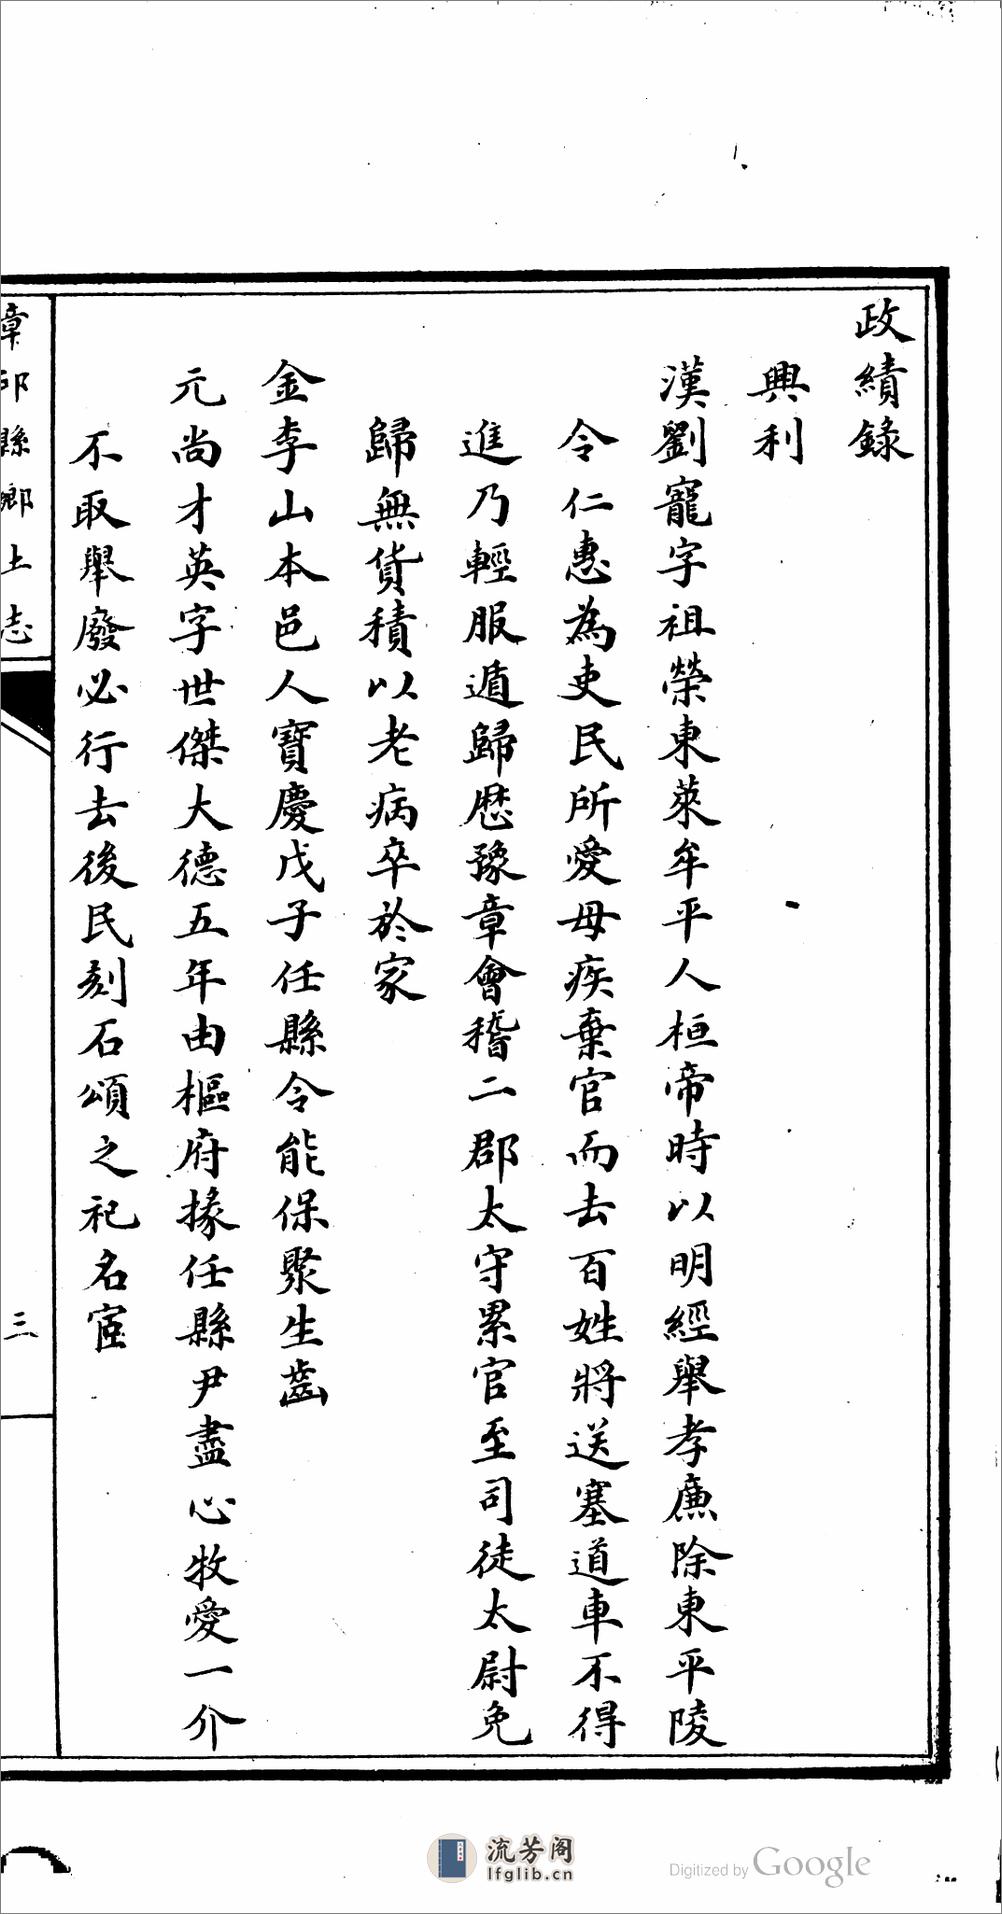 政績錄
興利
漢劉寵字祖榮東萊牟平人桓帝時以明經舉孝廉除東平陵
令仁惠為吏民所愛母疾棄官而去百姓將送塞道車不得
進乃輕服遁歸歷豫章會稽二郡太守累官至司徒太尉免
歸無貨積以老病卒於家
金李山本邑人寶慶戊子任縣令能保聚生齒
元尚才英字世傑大德五年由樞府掾任縣尹盡心牧愛一介
不取舉廢必行去後民刻石頌之祀名宦
章邱縣鄉土志
三
流芳阁
lfglib.cn
Digitized by Google